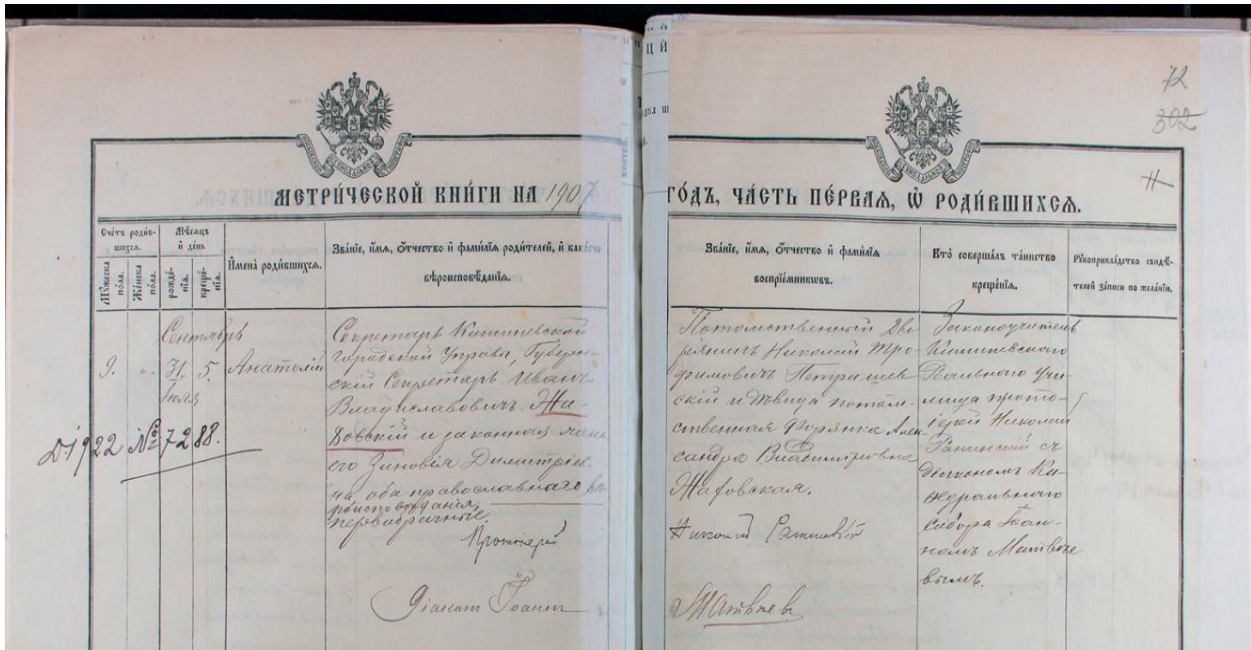 72
302
11
МЕТРИ́ЧЕСКОЙ КНИ́ГИ НА 1907
ГО́ДЪ, ЧА́СТЬ ПЕ́РВАЯ, Ѿ РОДИ́ВШИХСЯ.
Сче́тъ роди́в-
шихся.
Му́жеска по́ла.
Же́нска по́ла.
Мѣ́сяцъ
и҆ де́нь
рожде́-
нія.
креще́-
нія.
И҆мена̀ роди́вшихся.
Зва́ніе, и҆́мя, ѻ҆́тчество и҆ фами́лія роди́телей, и҆ како́гѡ
вѣроисповѣ́данія.
Зва́ніе, и҆́мя, ѻ҆́тчество и҆ фами́лія
воспріе́мниковъ.
Кто̀ соверша́лъ та́инство
креще́нія.
Рꙋкоприкла́дство свидѣ́-
телей за́писи по жела́нію.
Сентябрь
9. „ 31 5. Анатолій
Іюля
Д. 1922 № 7288.
Секретарь Кишиневской
Городской Управы, Губерн-
скій Секретарь Иванъ
Владиславовичъ Жа-
довскій и законная жена
его Зиновія Димитріев-
на, оба православнаго вѣ-
роисповѣданія,
первобрачные.
Протоіерей
Діаконъ Іоаннъ
Потомственный Дво-
рянинъ Николай Тро-
фимовичъ Петрашев-
скій и дѣвица потом-
ственная Дворянка Алек
сандра Владиміровна
Жадовская.
Николай
Матвѣевъ
Законоучитель
Кишиневскаго
Реальнаго Учи-
лища прото-
іерей Николай
съ
діакономъ Ка-
ѳедральнаго
собора Іоан-
номъ Матвѣе
вымъ.